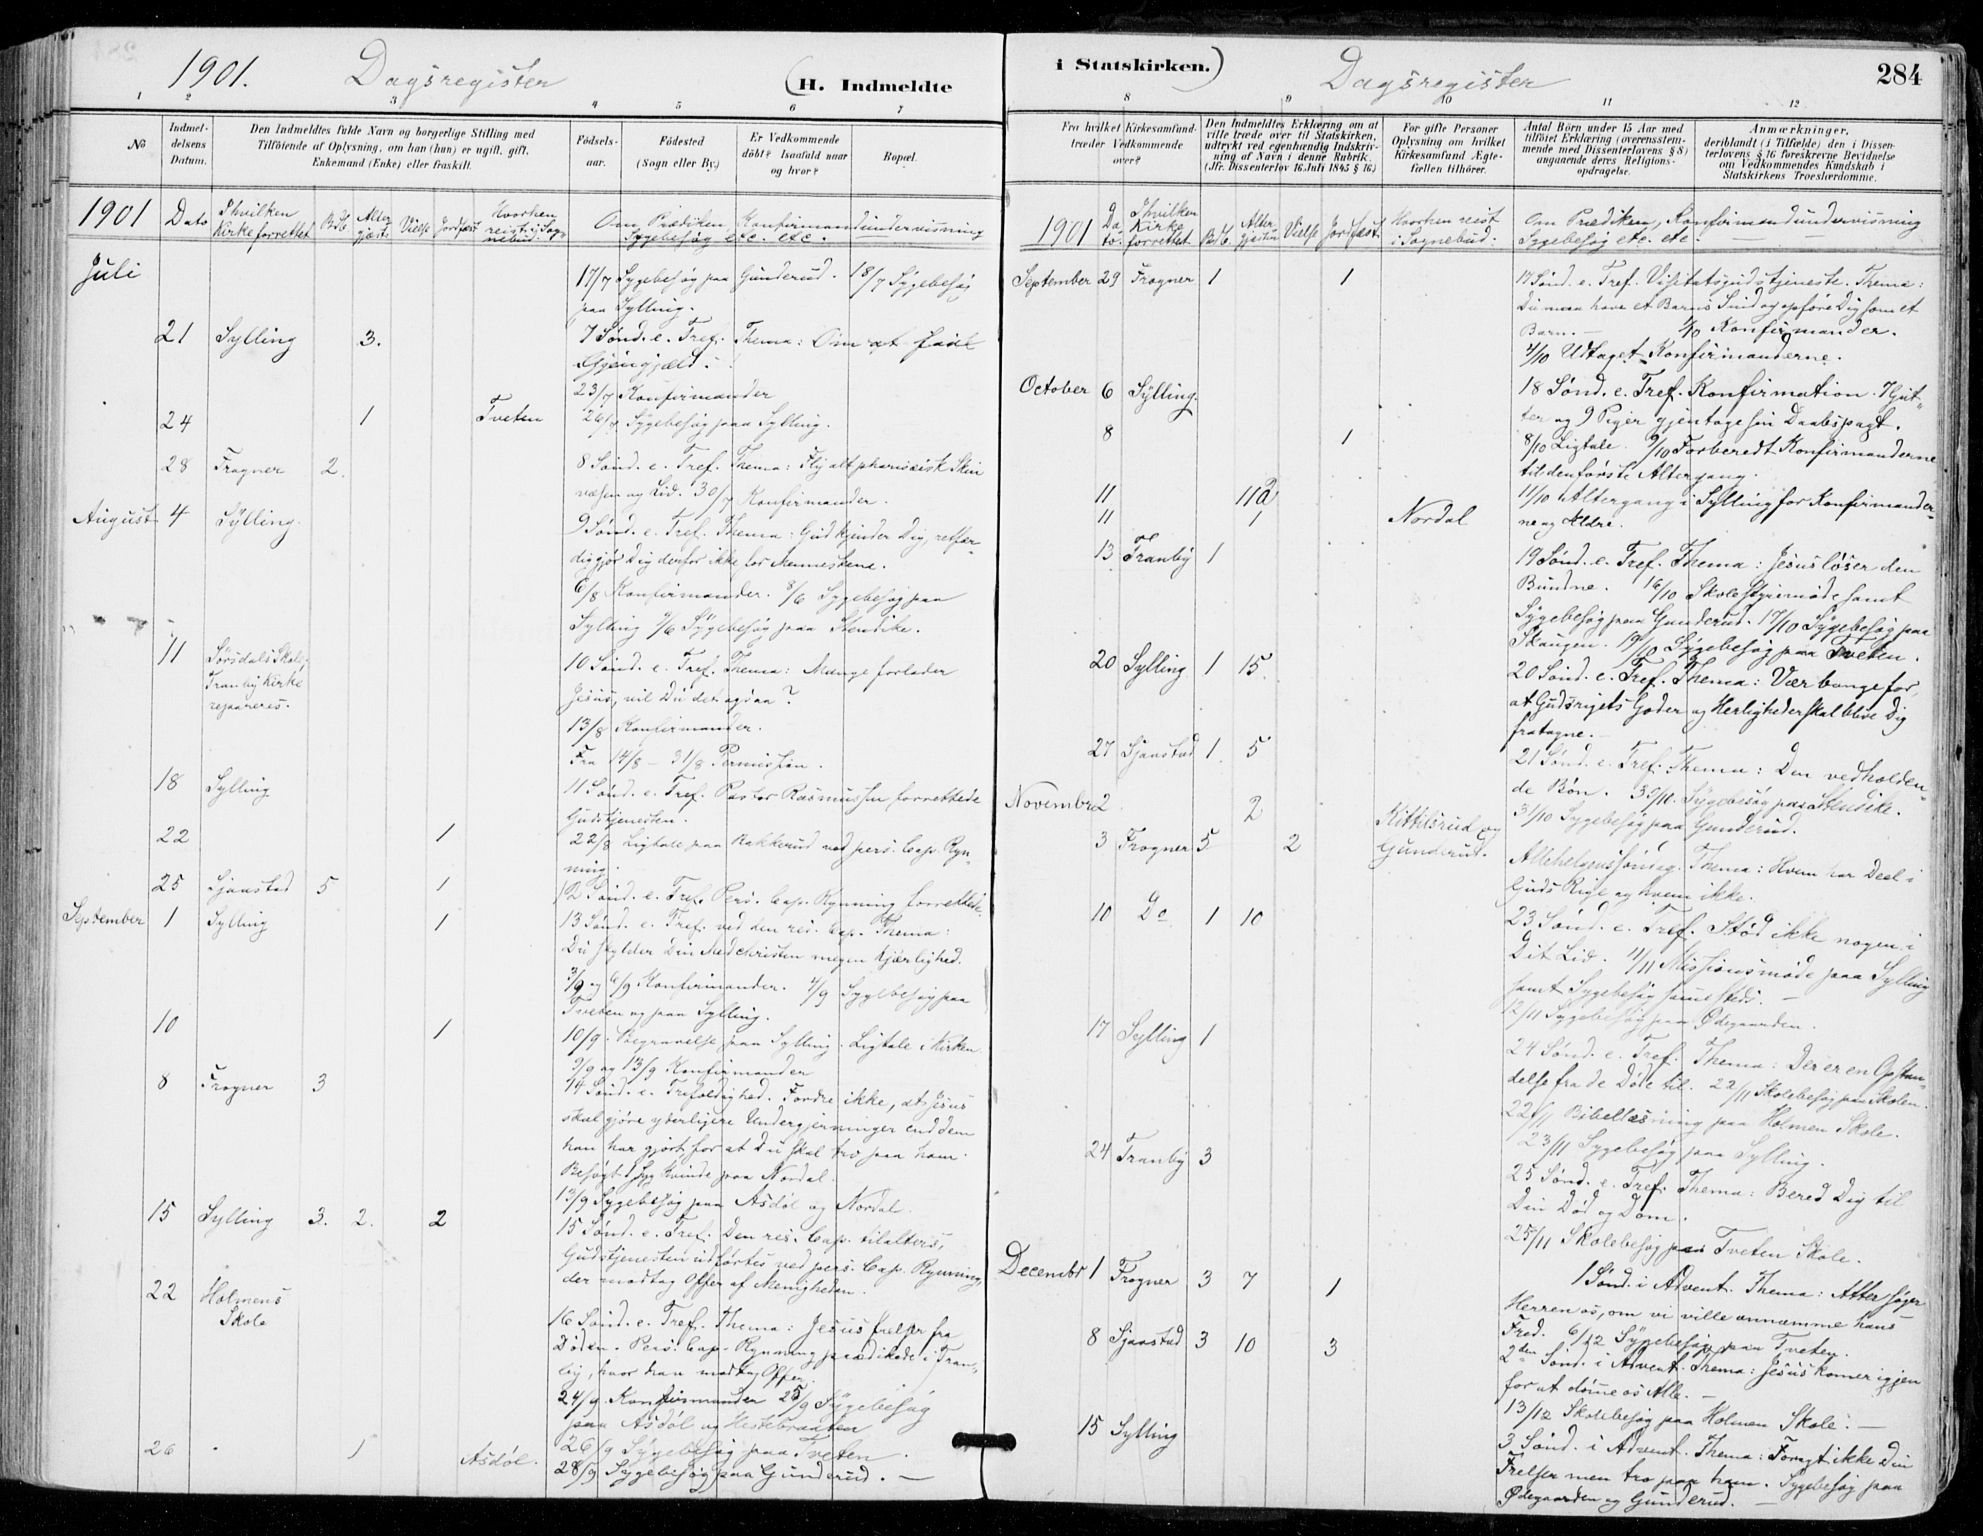 1901. Dagsregister (H. Indmeldte
1 2 3 4 5 6 7
№
Indmel-
delsens
Datum.
Den Indmeldtes fulde Navn og borgerlige Stilling med
Tilföiende af Oplysning, om han (hun) er ugift, gift,
Enkemand (Enke) eller fraskilt.
Födsels-
aar.
Födested
(Sogn eller By.)
Er Vedkommende
döbt? Isaafald naar
og hvor?
Bopæl.
1901 Dato I hvilken Kirke forrettet Alter gjæst. Vielse Jordfæst Hvorhen reist i Sognebud. Om Prædiken, Konfirmandundervisning
Sygebesög etc. etc.
Juli 17/7 Sygebesög paa Gunderud. 18/7 Sygebesög
paa Sylling.
21 Sylling 3. 7 Sönd. e. Tref. Thema: Om at
Gjengjæld.
23/7 Konfirmander
24 1 Tveten 26/7 Sygebesög paa Sylling.
28 Frogner 2. 8 Sönd. e. Tref. Thema: Fly alt pharisæisk Skin
væsen og Lid. 30/7 Konfirmander.
August 4 Sylling. 9 Sönd. e. Tref. Thema: Gud kjender Dig, retfær-
diggjör Dig derfor ikke for Menneskene.
6/8 Konfirmander. 8/6 Sygebesög paa
Sylling 9/6 Sygebesög paa Stendike.
11 Sörsdals Skole,
Tranby Kirke
repareres.
10 Sönd. e. Tref. Thema: Mange forlader
Jesus, vil Du det ogsaa?
13/8 Konfirmander.
Fra 14/8 - 31/8 Permission.
18 Sylling 11 Sönd. e. Tref. Pastor Rasmussen forrettede
Gudstjenesten.
22 1 22/8 Ligtale paa Bakkerud ved pers. Cap. Ryn-
ning.
25 Sjaastad 5 1 12 Sönd. e. Tref. Pers. Cap. Rynning forrettede.
September 1 Sylling 1 13 Sönd. e. Tref. ved den res. Cap. Thema:
Du skylder Din Medchristen megen Kjærlighed.
3/9 og 6/9 Konfirmander. 4/9 Sygebesög paa
Tveten og paa Sylling.
10 1 10/9. Begravelse paa Sylling. Ligtale i Kirken
9/9 og 13/9 Konfirmander
8 Frogner 3 14 Sönd. e. Trefoldighed. Fordre ikke, at Jesus
skal gjöre yderligere Undergjerninger end dem
han har gjort, for at Du skal tro paa ham.
Besögt 1 syg Kvinde paa Nordal.
13/9 Sygebesög paa Asdöl og Nordal.
15 Sylling 3. 2. 2 15 Sönd. e. Tref. Den res. Cap. tilalters,
Gudstjenesten udförtes ved pers. Cap. Rynning,
der modtog Offer af Menigheden.
22 Holmens
Skole
16 Sönd. e. Tref. Thema: Jesus frelser fra
Döden. Pers. Cap. Rynning prædikede i Tran-
by, hvor han modtog Offer.
24/9 Konfirmander 25/9 Sygebesög
paa Asdöl og Hestebraaten
26 1 Asdöl. 26/9 Sygebesög paa Tveten.
28/9 Sygebesög paa Gunderud. —
i Statskirken.) Dagsregister 284
8 9 10 11 12
Fra hvilket Kirkesamfund
træder Vedkommende
over?
Den Indmeldtes Erklæring om at
ville træde over til Statskirken,
udtrykt ved egenhændig Indskriv-
ning af Navn i denne Rubrik.
(Jfr. Dissenterlov 16 Juli 1845 § 16)
For gifte Personer
Oplysning om hvilket
Kirkesamfund Ægte-
fællen tilhörer.
Antal Börn under 15 Aar med
tilföiet Erklæring (overensstem-
mende med Dissenterlovens § 8)
angaaende deres Religions-
opdragelse.
Anmærkninger,
deriblandt (i Tilfælde) den i Dissen-
terlovens § 16 foreskrevne Bevidnelse
om Vedkommendes Kundskab i
Statskirkens Troeslærdomme.
1901 Dato. I hvilken Kirke forrettet. Alter gjæster Vielse Jordfæst. Hvorhen reist i Sognebud. Om Prædiken, Konfirmandundervisning
Sygebesög etc. etc. —
September 29 Frogner 1 1 17 Sönd. e. Tref. Visitatsgudstjeneste. Thema:
Du maa have et Barns Sind og opföre Dig som et
Barn. — Konfirmander.
4/10 Udtaget Konfirmanderne.
October 6 Sylling. 18 Sönd. e. Tref. Konfirmation. 7 Gut-
ter og 9 Piger gjentoge sin Daabspagt.
8 1 8/10 Ligtale. 9/10 Forberedt Konfirmanderne
til den förste Altergang.
11 11/10 Altergang i Sylling for Konfirmander-
11 1 Nordal ne og Ældre.
13 Tranby 1 19 Sönd. e. Tref. Thema: Jesus löser den
Bundne. 16/10 Skolestyremöde samt
Sygebesög paa Gunderud. 17/10 Sygebesög paa
Skaugen. 19/10 Sygebesög paa Tveten.
20 Sylling 1 15. 20 Sönd. e. Tref. Thema: Vær bange for,
at Gudsrigets Goder og Herligheder skal blive Dig
fratagne. —
27 Sjaastad 1. 5 21 Sönd. e. Tref. Thema: Den vedholden-
de Bön. 30/10. Sygebesög paa Stendike.
November 2 2 Kittilsrud og
Gunderud.
31/10 Sygebesög paa Gunderud.
3 Frogner 5 2 Allehelgenssöndag. Thema: Hvem har Deel i
Guds Rige og hvem ikke.
10 Do 1 10 23. Sönd. e. Tref. Stöd ikke nogen i
Dit Lid. 11/11 Missionsmöde paa Sylling
samt Sygebesög sammesteds. —
12/11 Sygebesög paa Ödegaarden.
17 Sylling 1 24 Sönd. e. Tref. Thema: Der er en Opstan-
delse fra de Döde til. 22/11 Skolebesög paa Skolen.
22/11 Bibellæsning paa Holmen Skole.
23/11 Sygebesög paa Sylling.
24 Tranby 3 25 Sönd. e. Tref. Thema: Bered Dig til
Din Död og Dom.
25/11 Skolebesög paa Tveten Skole.
December 1 Frogner 3 7 1 1 Sönd. i Advent. Thema: Atter söger
Herren os, om vi ville annamme hans
Fred. 6/12 Sygebesög paa Tveten.
8 Sjaastad 3 10 3 2den Sönd. i Advent. Thema: Jesus kommer igjen
for at dömme os Alle. —
13/12 Skolebesög paa Holmen Skole. —
15 Sylling 3 Sönd. i Advent. Thema: Foragt ikke Din
Frelser men tro paa ham. Sygebesög paa
Ödegaarden og Gunderud. —